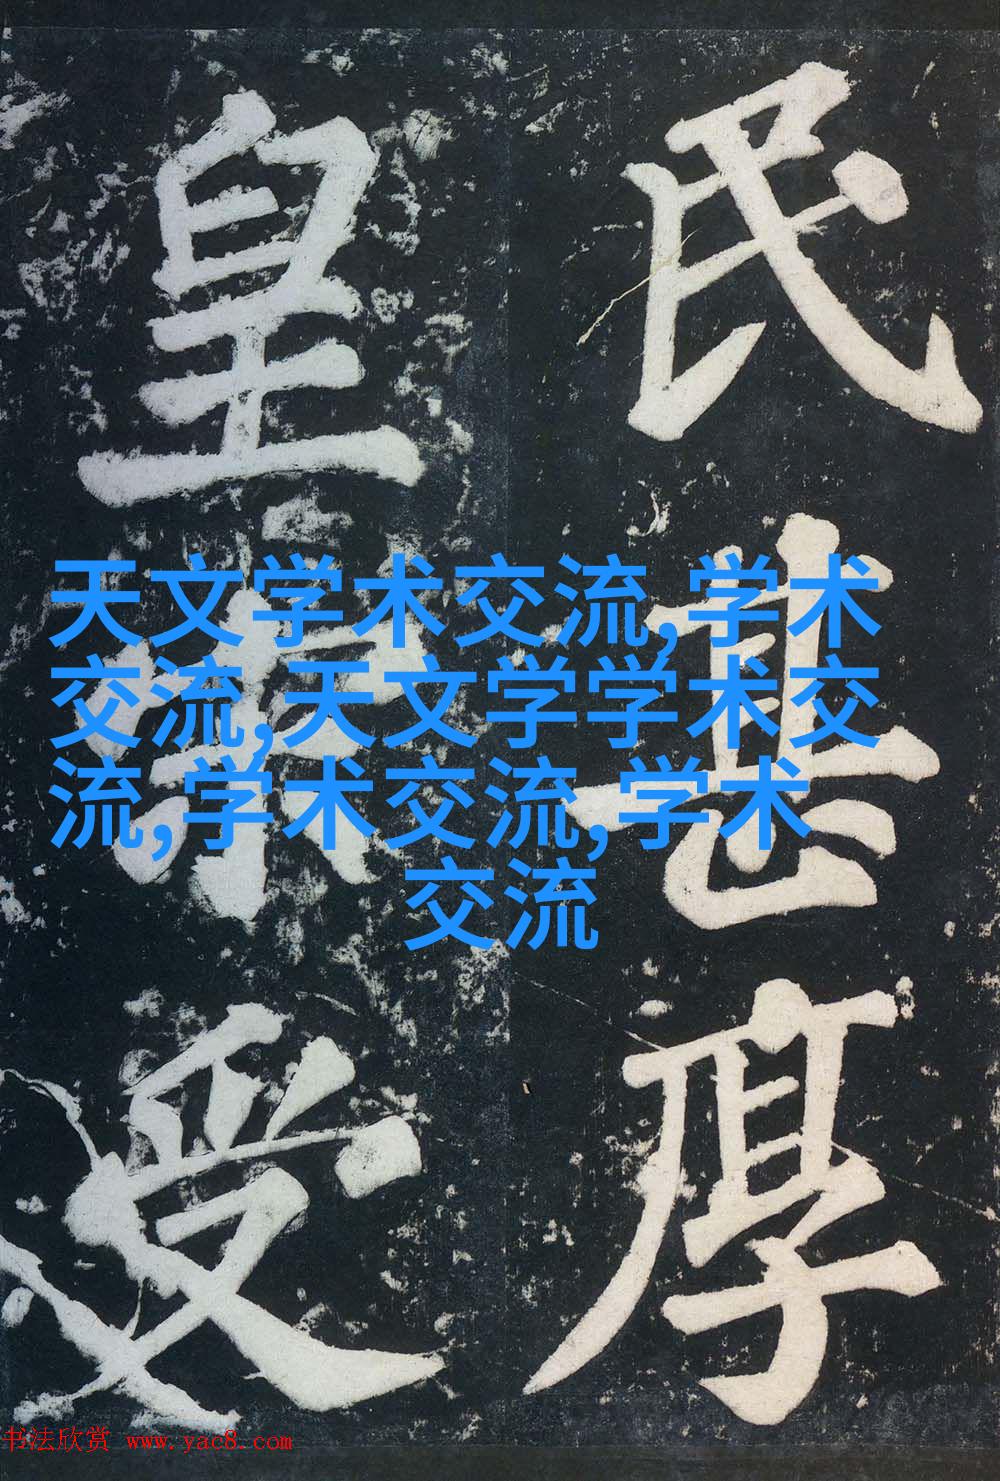 民甚厚
皇宋受
天文学术交流,学术
交流,天文学学术交
流,学术交流,学术
交流
书法欣赏 www.yac8.com